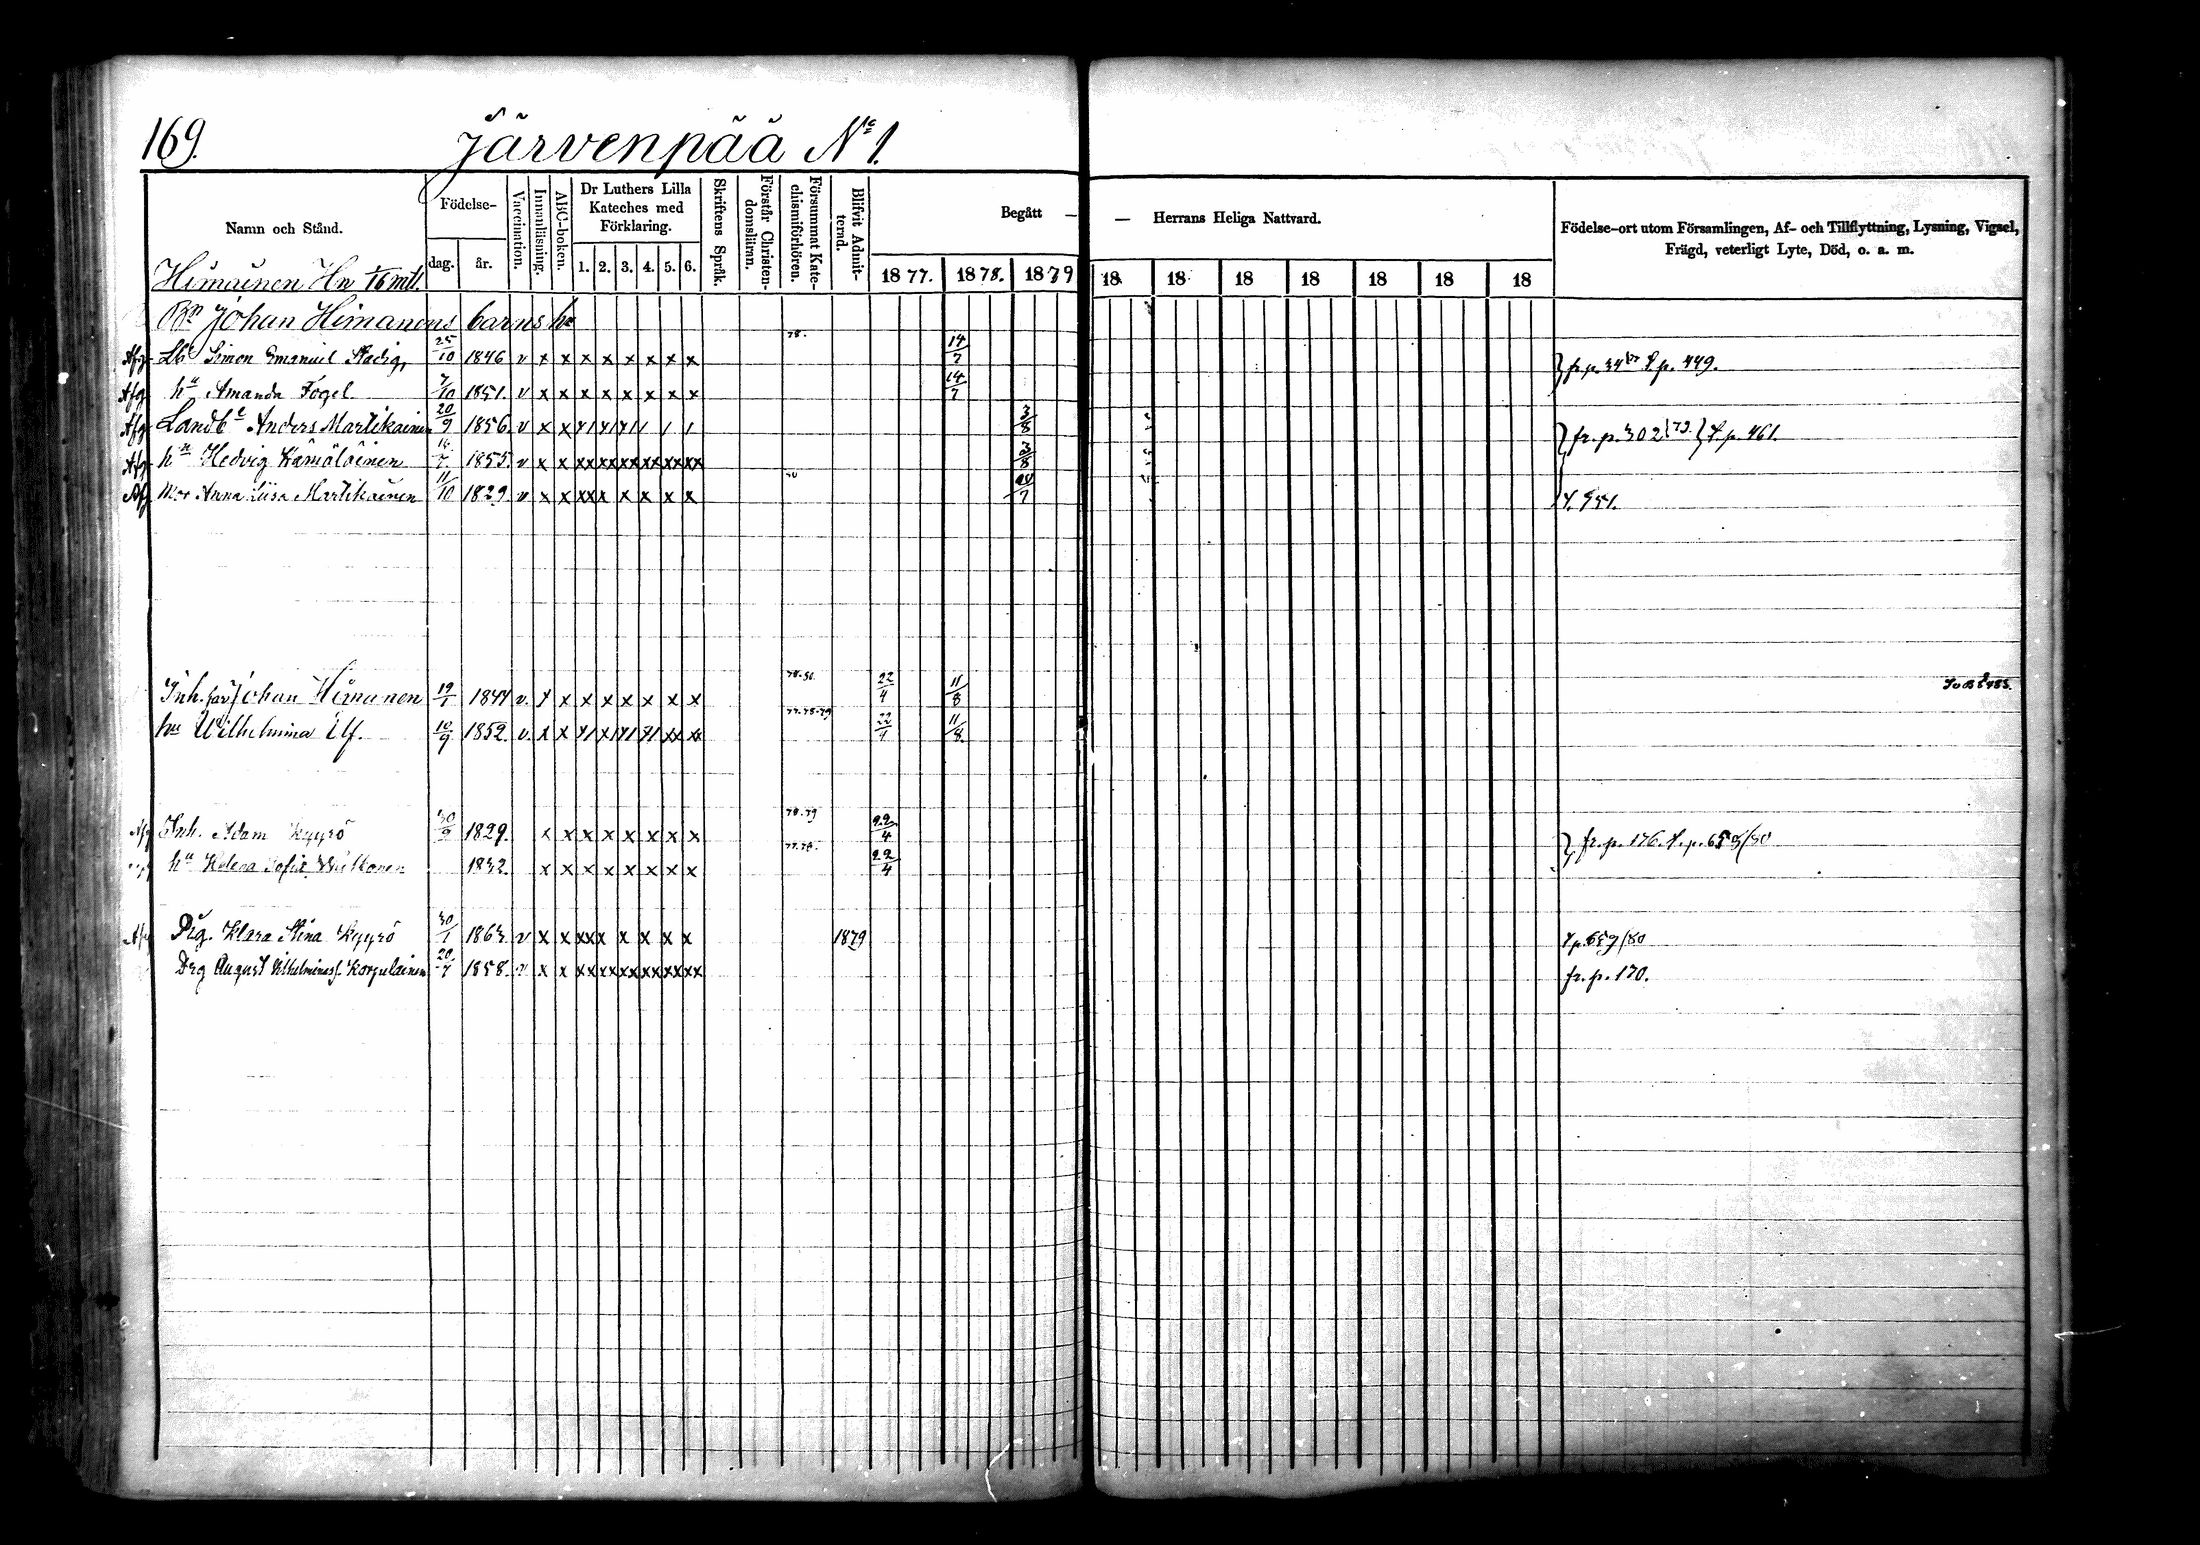 169.
Järvenpää No 1.
Namn och Stånd.
Födelse-
dag.
år.
Vaccination.
Innanläsning.
ABC-boken.
Dr Luthers Lilla Kateches med Förklaring.
1. 2. 3. 4. 5. 6.
Skriftens Språk.
Förstår Christen-domsläran.
Försummat Kate-chismiförhören.
Blifvit Admit-terad.
Begått — — Herrans Heliga Nattvard.
1877. 1878. 1879 18 18 18 18 18 18 18
Födelse-ort utom Församlingen, Af- och Tillflyttning, Lysning, Vigsel,
Frägd, veterligt Lyte, Död, o. a. m.
Himainen Hn 1/6 mtl.
Bn Johan Himanens barns hn
Afg Lbe Simon Emanuel Stadig, 25/10 1846 v x x x x x x x x 78. 14/7
Afg hu Amanda Fogel 7/10 1851. v x x x x x x x x 14/7
Afg Landbe Anders Martikainen 20/9 1856. v x x 3/8 fr. p. 302 79. p. 461.
Afg hu Hedvig Hämäläinen 1855. v x x xx xx xx xx xx xx 3/8
Afg Mor Anna Liisa Martikainen 11/10 1829. v x x xx x x x x x
Inh. Johan Himanen 19/1 1844 v. x x x x x x x 22/4 11/8
hu Wilhelmina Ulf. 10/9 1852. v. 77.78.79 22/4 11/8
Afg Inh. Adam Kyyrö 30/9 1829. x x x x x x x x 78.79 22/4 fr. p. 176. p. 659/80
hu Helena Sofia 1832. x x x x x x x x 22/4
Afg Drg. Klara Stina Kyyrö 30/1 1863. v x x xx x x x x x 1879 p. 659/80
Drg August Vilhelminas s. Korpulainen 20/7 1858. v x x xx xx xx xx xx xx fr. p. 170.